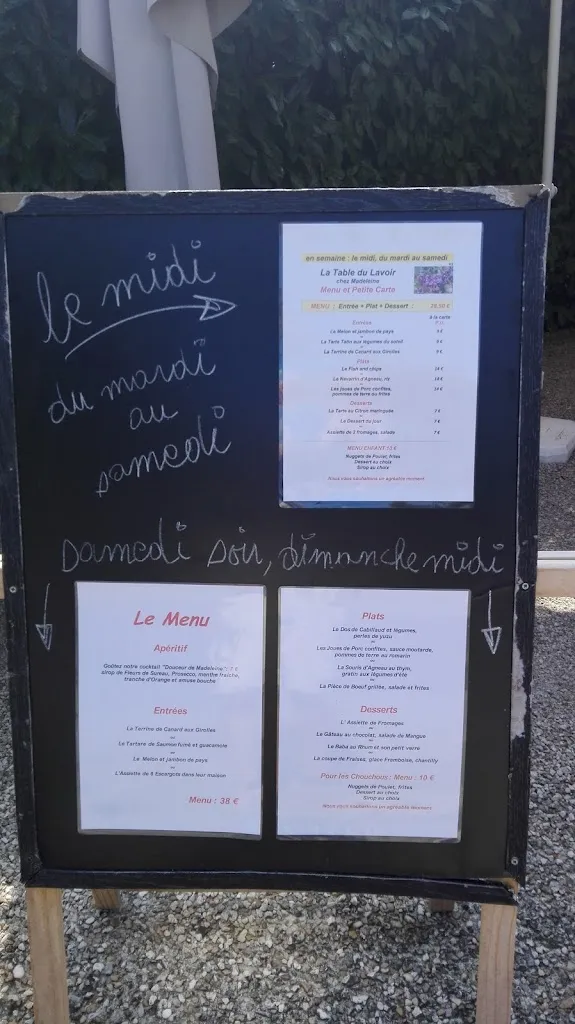 le midi
du mardi
au
samedi
en semaine : le midi, du mardi au samedi
La Table du Lavoir
chez Madeleine
Menu et Petite Carte
MENU : Entrée + Plat + Dessert :
à la carte
Entrées
Le Melon et jambon de pays
La Tarte Tatin aux légumes du soleil
La Terrine de Canard aux Girolles
Plats
Le Fish and chips
Le Navarin d'Agneau, riz
Les Joues de Porc confites,
pommes de terre ou frites
Desserts
La Tarte au Citron meringuée
Le Dessert du jour
Assiette de 3 fromages, salade
MENU ENFANT
Nuggets de Poulet, frites
Dessert au choix
Sirop au choix
Nous vous souhaitons un agréable moment
samedi soir, dimanche midi
Le Menu
Apéritif
Goûtez notre cocktail "Douceur de Madeleine"
sirop de Fleurs de Sureau, Prosecco, menthe fraîche,
tranche d'Orange et amuse bouche
Entrées
La Terrine de Canard aux Girolles
Le Tartare de Saumon fumé et guacamole
Le Melon et jambon de pays
L'Assiette de 6 Escargots dans leur maison
Menu : 38 €
Plats
Le Dos de Cabillaud et légumes,
perles de yuzu
Les Joues de Porc confites, sauce moutarde,
pommes de terre au romarin
La Souris d'Agneau au thym,
gratin aux légumes d'été
La Pièce de Boeuf grillée, salade et frites
Desserts
L' Assiette de Fromages
Le Gâteau au chocolat, salade de Mangue
Le Baba au Rhum et son petit verre
La coupe de Fraises, glace Framboise, chantilly
Pour les Chouchous : Menu : 10 €
Nuggets de Poulet, frites
Dessert au choix
Sirop au choix
Nous vous souhaitons un agréable moment